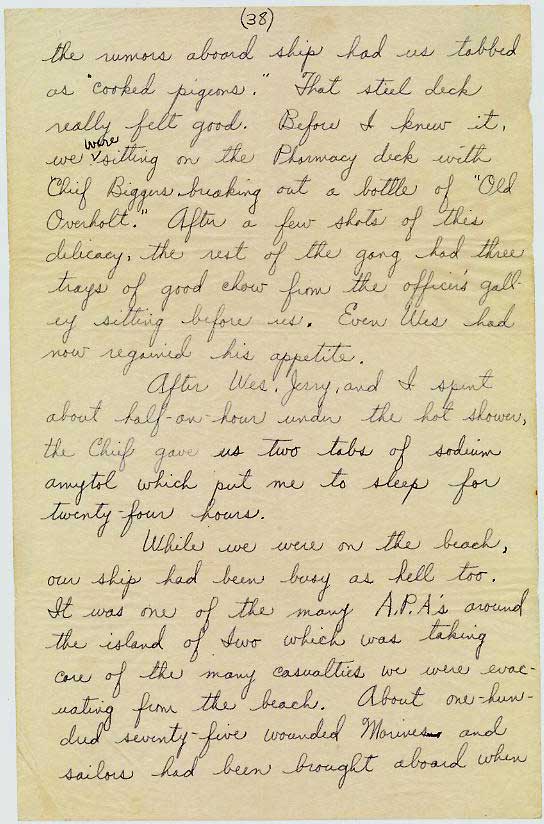 (38)
the rumors aboard ship had us tabbed
as "cooked pigeons." That steel deck
really felt good. Before I knew it,
we were sitting on the Pharmacy deck with
Chief Biggers breaking out a bottle of "Old
Overholt." After a few shots of this
dilicacy, the rest of the gang had three
trays of good chow from the officer's gall-
ey sitting before us. Even Wes had
now regained his appetite.
After Wes, Jerry, and I spent
about half-an-hour under the hot shower,
the Chief gave us two tabs of sodium
amytol which put me to sleep for
twenty-four hours.
While we were on the beach,
our ship had been busy as hell too.
It was one of the many A.P.A's around
the island of Iwo which was taking
care of the many casualties we were evac-
uating from the beach. About one-hun-
dred seventy-five wounded Marines and
sailors had been brought aboard when